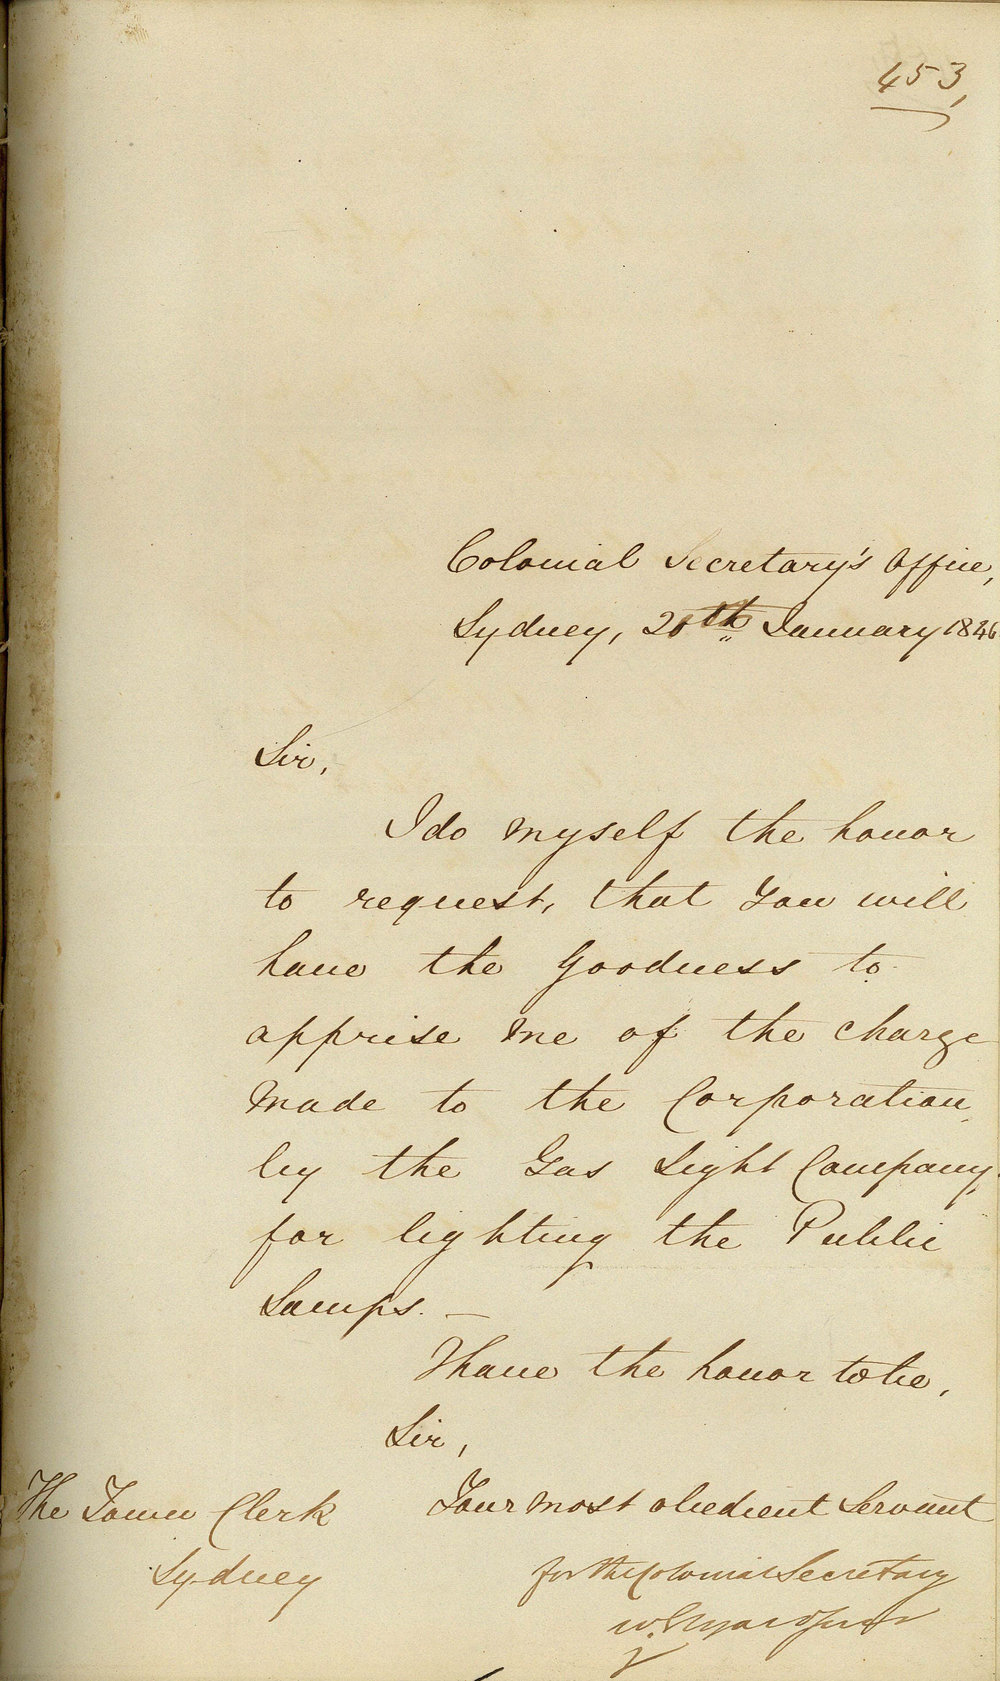 453,
Colonial Secretary's Office,
Sydney, 20th January 1846
Sir,
I do myself the honor
to request, that You will
have the Goodness to
apprise me of the charge
made to the Corporation
by the Gas Light Company,
for lighting the Public
Lamps. —
I have the honor to be,
Sir,
Your most obedient Servant
The Town Clerk
Sydney
for the Colonial Secretary
W.